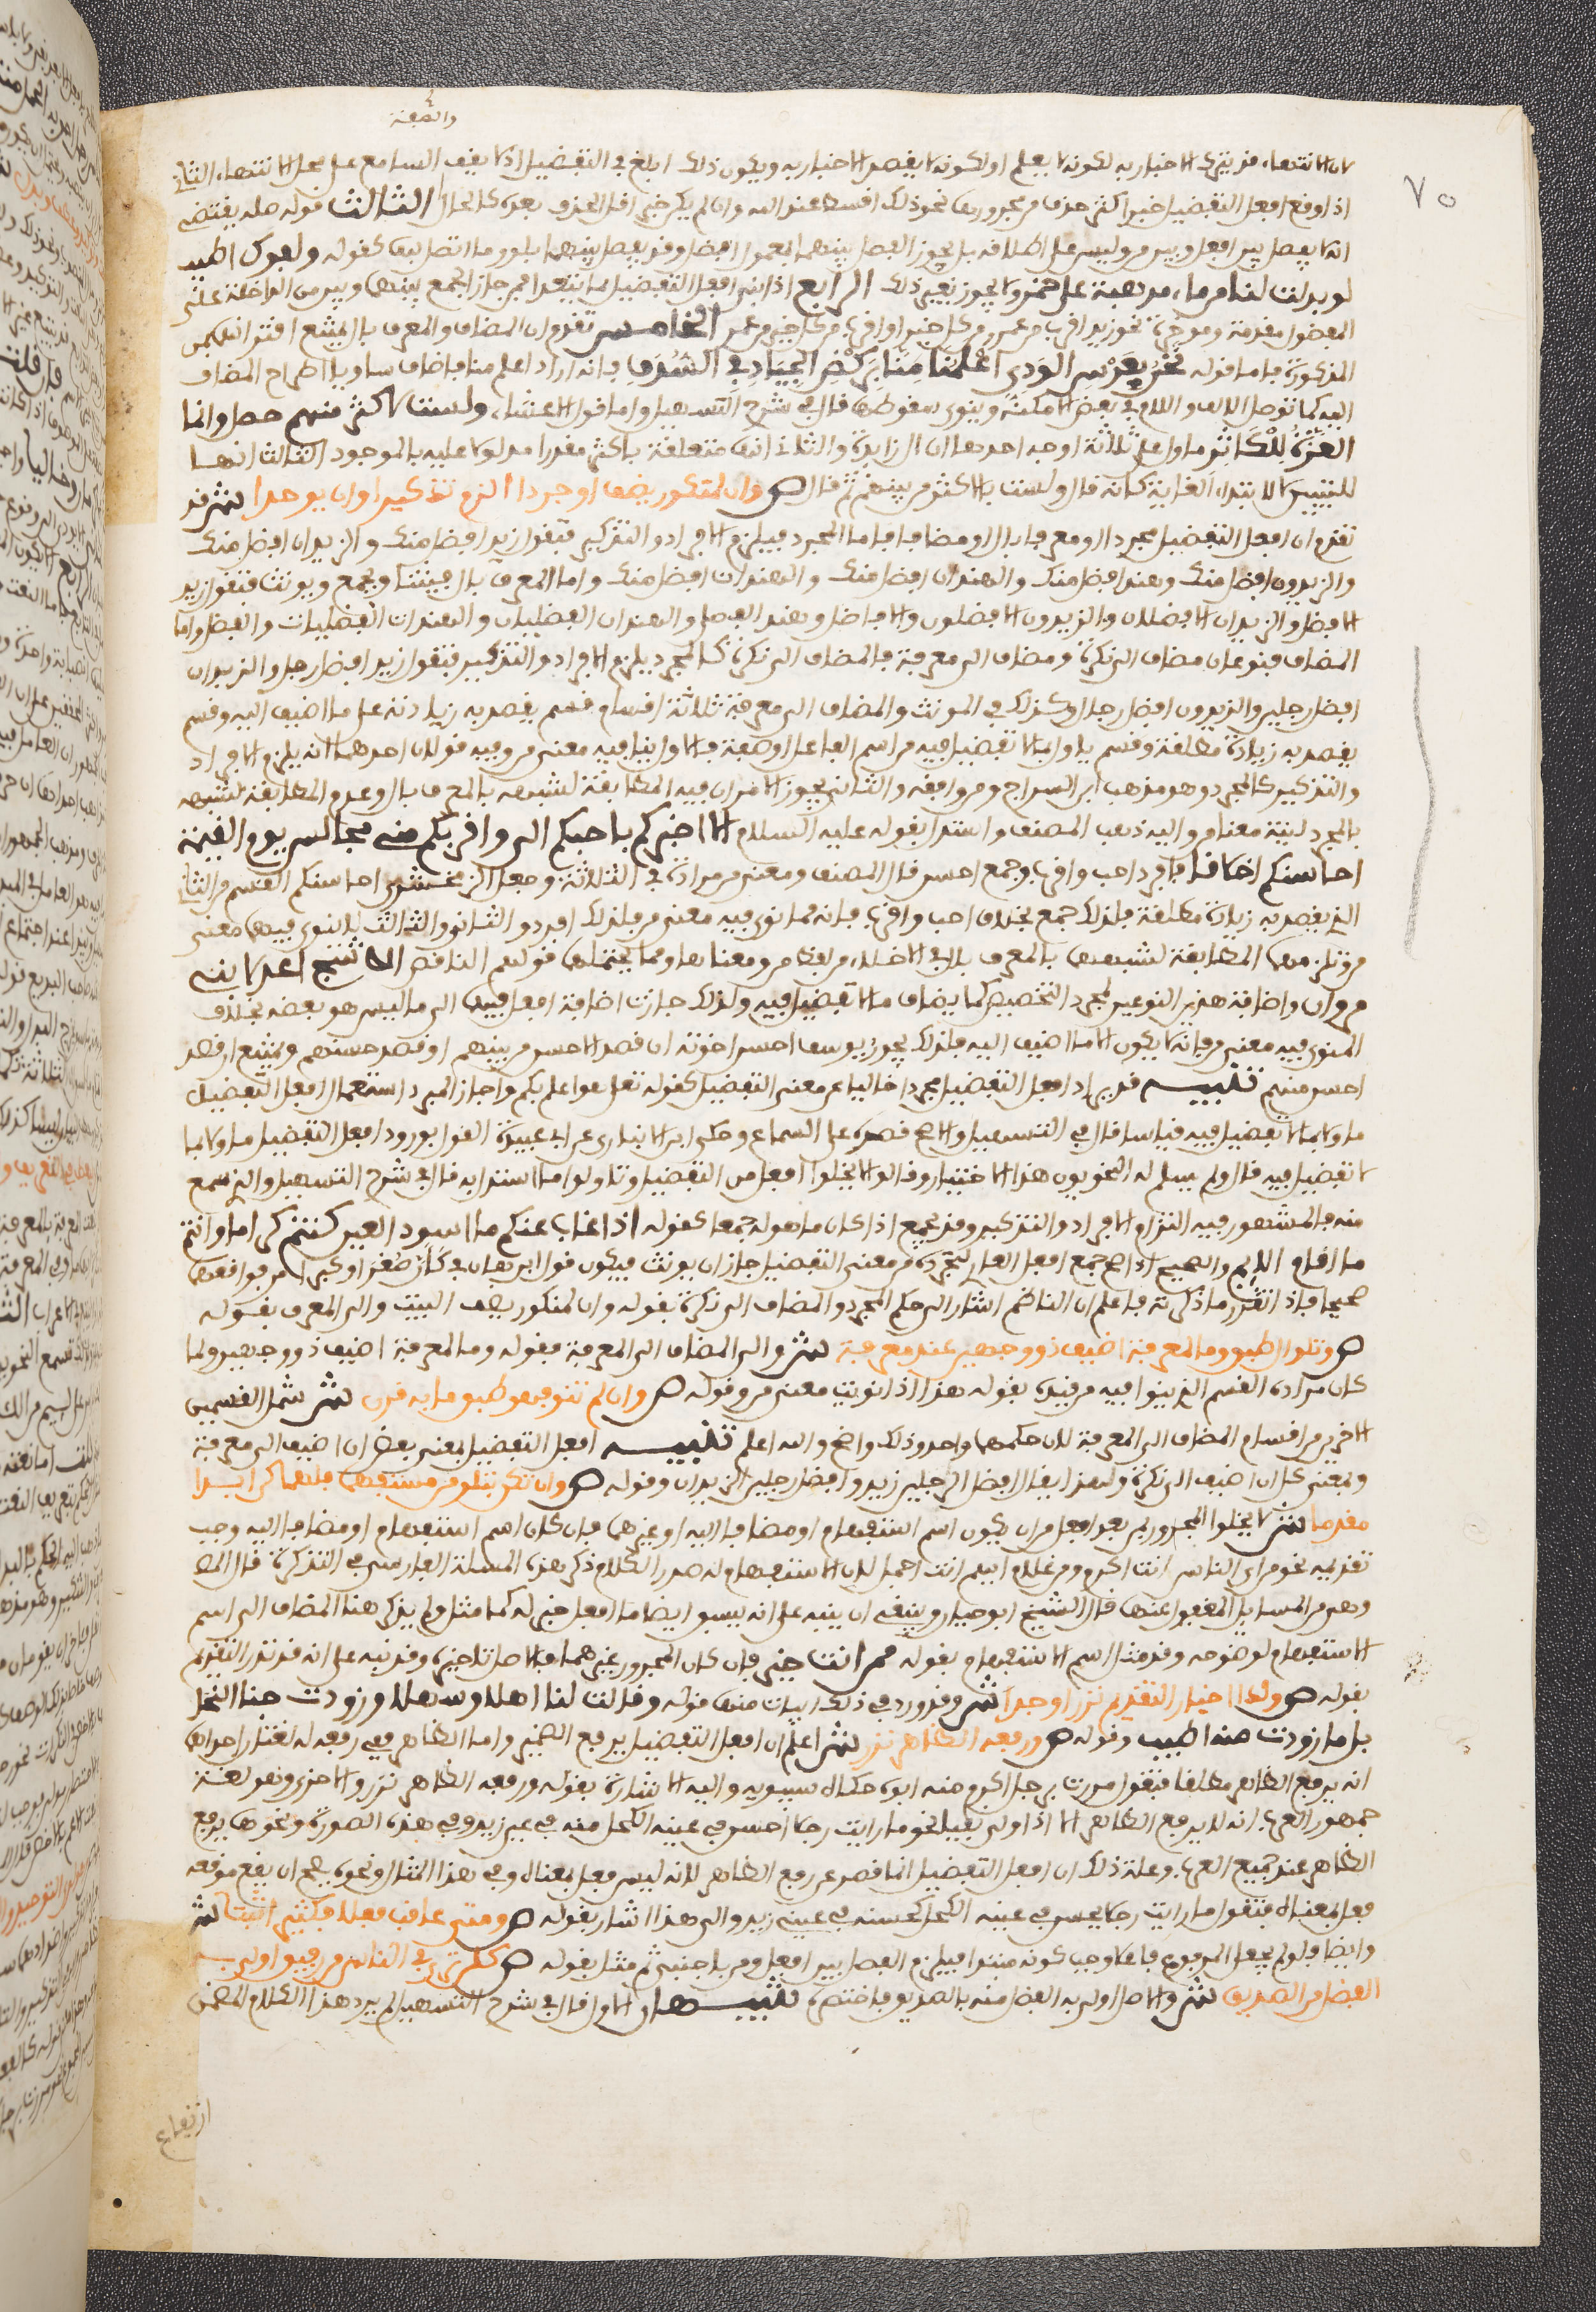 والصفة
٧٥
لان الانتهاء قد يترك الاخبار به لكونه لا يعلم او لكونه لا يقصد الاخبار به ويكون ذلك ابلغ في التفضيل اذ لا يقف السامع على محل الانتهاء الثاني
اذا وقع افعل التفضيل خبرا كثر حذف من مجرورها نحو ذلك اقسط عند الله وان لم يكن خبرا قل الحذف بعده كالحال الثالث قوله صله يقتضي
انه لا يفصل بين افعل وبين من وليس على اطلاقه بل يجوز الفصل بينهما بمعمول افعل وقد يفصل بينهما بلو وما اتصل بها كقوله ولفوك اطيب
لو بذلت لنا من ماء موهبة على خمر ولا يجوز بغير ذلك الرابع اذا بني افعل التفضيل مما يتعدا بمن جاز الجمع بينها وبين من الداخلة على
المفضول مقدمة ومؤخرة نحو زيد اقرب من عمرو من كل خير او اقرب من كل خير من عمرو الخامس تقدم ان المضاف والمعرف بال يمتنع اقترانهما بمن
المذكورة فاما قوله نحن بغرس الودي اعلمنا منا بركض الجياد في السدف فانه اراد اعلم منا فاضاف ناويا اطراح المضاف
اليه كما تدخل الالف واللام في بعض الامكنة وينوى سقوطها قال في شرح التسهيل واما قول الاعشى ولست بالاكثر منهم حصا وانما
العزة للكاثر فماول على ثلاثة اوجه احدها ان ال زايدة والثاني انها متعلقة باكثر مقدرا مدلولا عليه بالموجود الثالث انها
للتبيين لا لابتداء الغاية كانه قال ولست بالاكثر من بينهم ثم قال ص وان لمنكور يضف او جردا الزم تذكيرا وان يوحدا ش قد
تقدم ان افعل التفضيل مجرد او معرف بال او مضاف فاما المجرد فيلزم الافراد والتذكير فتقول زيد افضل منك والزيدان افضل منك
والزيدون افضل منك وهند افضل منك والهندان افضل منك والهندات افضل منك واما المعرف بال فيثنى ويجمع ويونث فتقول زيد
الافضل والزيدان الافضلان والزيدون الافضلون والافاضل وهند الفضلى والهندان الفضليان والهندات الفضليات والفضل واما
المضاف فنوعان مضاف الى نكرة ومضاف الى معرفة فالمضاف الى نكرة كالمجرد يلزم الافراد والتذكير فتقول زيد افضل رجل والزيدان
افضل رجلين والزيدون افضل رجال وكذلك في المونث والمضاف الى معرفة ثلاثة اقسام قسم يقصد به زيادته على ما اضيف اليه وقسم
يقصد به زيادة مطلقة وقسم ياول بما لا تفضيل فيه من اسم الفاعل او صفة فالاول ينوى فيه معنى من وفيه قولان احدهما انه يلزم الافراد
والتذكير كالمجرد وهو مذهب ابن السراج ومن وافقه والثاني يجوز الامران فيه المطابقة لشبهه بالمعرف بال وعدم المطابقة لشبهه
بالمجرد لنية معنى من واليه ذهب المصنف واستدل بقوله عليه السلام الا اخبركم باحبكم الي واقربكم مني مجالس يوم القيمة
احاسنكم اخلاقا فافرد احب واقرب وجمع احسن قال المصنف ومعنى من مراد في الثلاثة وجعل الزمخشري احاسنكم القسم الثاني
الذي يقصد به زيادة مطلقة فلذلك جمع بخلاف احب واقرب فانه مما نوي فيه معنى من فلذلك افرد والثاني والثالث لا ينوى فيهما معنى
من وتلزمهما المطابقة لشبههما بالمعرف بال في الاخلاء من لفظ من ومعناها ومما يحتملها قولهم الناقص الاشج اعدلا بني
مروان واضافة هذين النوعين لمجرد التخصيص كما يضاف ما لا تفضيل فيه ولذلك جازت اضافة افعل فيهما الى ما ليس هو بعضه بخلاف
المنوي فيه معنى من فانه لا يكون الا ما اضيف اليه فلذلك يجوز يوسف احسن اخوته ان قصد الاحسن من بينهم او قصد حسنهم ويمتنع ان قصد
احسن منهم تنبيه قد يراد افعل التفضيل مجردا خاليا عن معنى التفضيل كقوله تعلى هو اعلم بكم واجاز المبرد استعمال افعل التفضيل
ماولا بما لا تفضيل فيه قياسا قال في التسهيل والاصح قصره على السماع وحكى ابن الانباري عن ابي عبيدة القول بورود افعل التفضيل ماولا بما
لا تفضيل فيه قال ولم يسلم له النحويون هذا الاختيار وقالوا لا يخلوا افعل من التفضيل وتاولوا ما استدل به قال في شرح التسهيل والذي سمع
منه فالمشهور فيه التزام الافراد والتذكير وقد يجمع اذا كان ما هو له جمعا كقوله اذا غاب عنكم ما اسود العين كنتم كراما وانتم
ما اقام الائم والصحيح اذا صح جمع افعل العاري لتجرده من معنى التفضيل جاز ان يونث فيكون قول ابن هاني كان صغرى وكبرى من فواقعها
صحيحا فاذا تقرر ما ذكرته فاعلم ان الناظم اشار الى حكم المجرد والمضاف الى نكرة بقوله وان لمنكور يضف البيت والى المعرف بقوله
ص وتلو ال طبق وما لمعرفة اضيف ذو وجهين عن ذي معرفة ش والى المضاف الى المعرفة بقوله وما لمعرفة اضيف ذو وجهين ولما
كان مراده القسم الذي ينوا فيه من قيده بقوله هذا اذا نويت معنى من وقوله ص وان لم تنو فهو طبق ما به قرن ش شمل القسمين
الاخيرين من اقسام المضاف الى المعرفة لان حكمهما واحد وذلك واضح والله اعلم تنبيه افعل التفضيل بمعنى بعض ان اضيف الى معرفة
وبمعنى كل ان اضيف الى نكرة ولهذا يقال افضل الرجلين زيد وافضل رجلين الزيدان وقوله ص وان تكن بتلو من مستفهما فلهما كن ابدا
مقدما ش لا يخلوا المجرور بمن بعد افعل من ان يكون اسم استفهام او مضافا اليه او غيرهما فان كان اسم استفهام او مضافا اليه وجب
تقديمه نحو من اي الناس انت اكرم ومن غلام ايهم انت اجمل لان الاستفهام له صدر الكلام ذكر هذه المسئلة الفارسي في التذكرة قال المص
وهي من المسايل المغفول عنها قال الشيخ ابو حيان وينبغي ان ينبه على انه يسبق ايضا ما افعل خبر له كما مثل ولم يذكر هنا المضاف الى اسم
الاستفهام لوضوحه وقد مثل اسم الاستفهام بقوله ممن انت خير فان كان المجرور غيرهما فالاصل تاخيره وقد نبه على انه قد ندر التقديم
بقوله ص ولدا اخبار التقديم نزرا وجدا ش وقد ورد في ذلك ابيات منها قوله وقالت لنا اهلا وسهلا وزودت جنا النخل
بل ما زودت منه اطيب وقوله ص ورفعه الظاهر نزر ش اعلم ان افعل التفضيل يرفع الضمير واما الظاهر ففي رفعه له لغتان احداهما
انه يرفع الظاهر مطلقا فتقول مررت برجل اكرم منه ابوه حكاه سيبويه واليه الاشارة بقوله ورفعه الظاهر نزر والاخرى وهو لغة
جمهور العرب انه لا يرفع الظاهر الا اذا ولي نفيا نحو ما رايت رجلا احسن في عينه الكحل منه في عين زيد وفي هذه الصورة ونحوها يرفع
الظاهر عند جميع العرب وعلة ذلك ان افعل التفضيل انما قصر عن رفع الظاهر لانه ليس فعل بمعناه وفي هذا المثال ونحوه يصح ان يقع موقعه
فعل بمعناه فتقول ما رايت رجلا يحسن في عينه الكحل كحسنه في عين زيد والى هذا اشار بقوله ص ومتى عاقب فعلا فكثيرا ثبتا ش
وايضا فلو لم يجعل المرفوع فاعلا وجب كونه مبتدا فيلزم الفصل بين افعل ومن باجنبي ثم مثل بقوله ص كلن ترى في الناس من رفيق اولى به
الفضل من الصديق ش والاصل اولى به الفضل منه بالصديق فاختصر تنبيهان الاول قال في شرح التسهيل لم يرد هذا الكلام المتضمن
ارتفاع